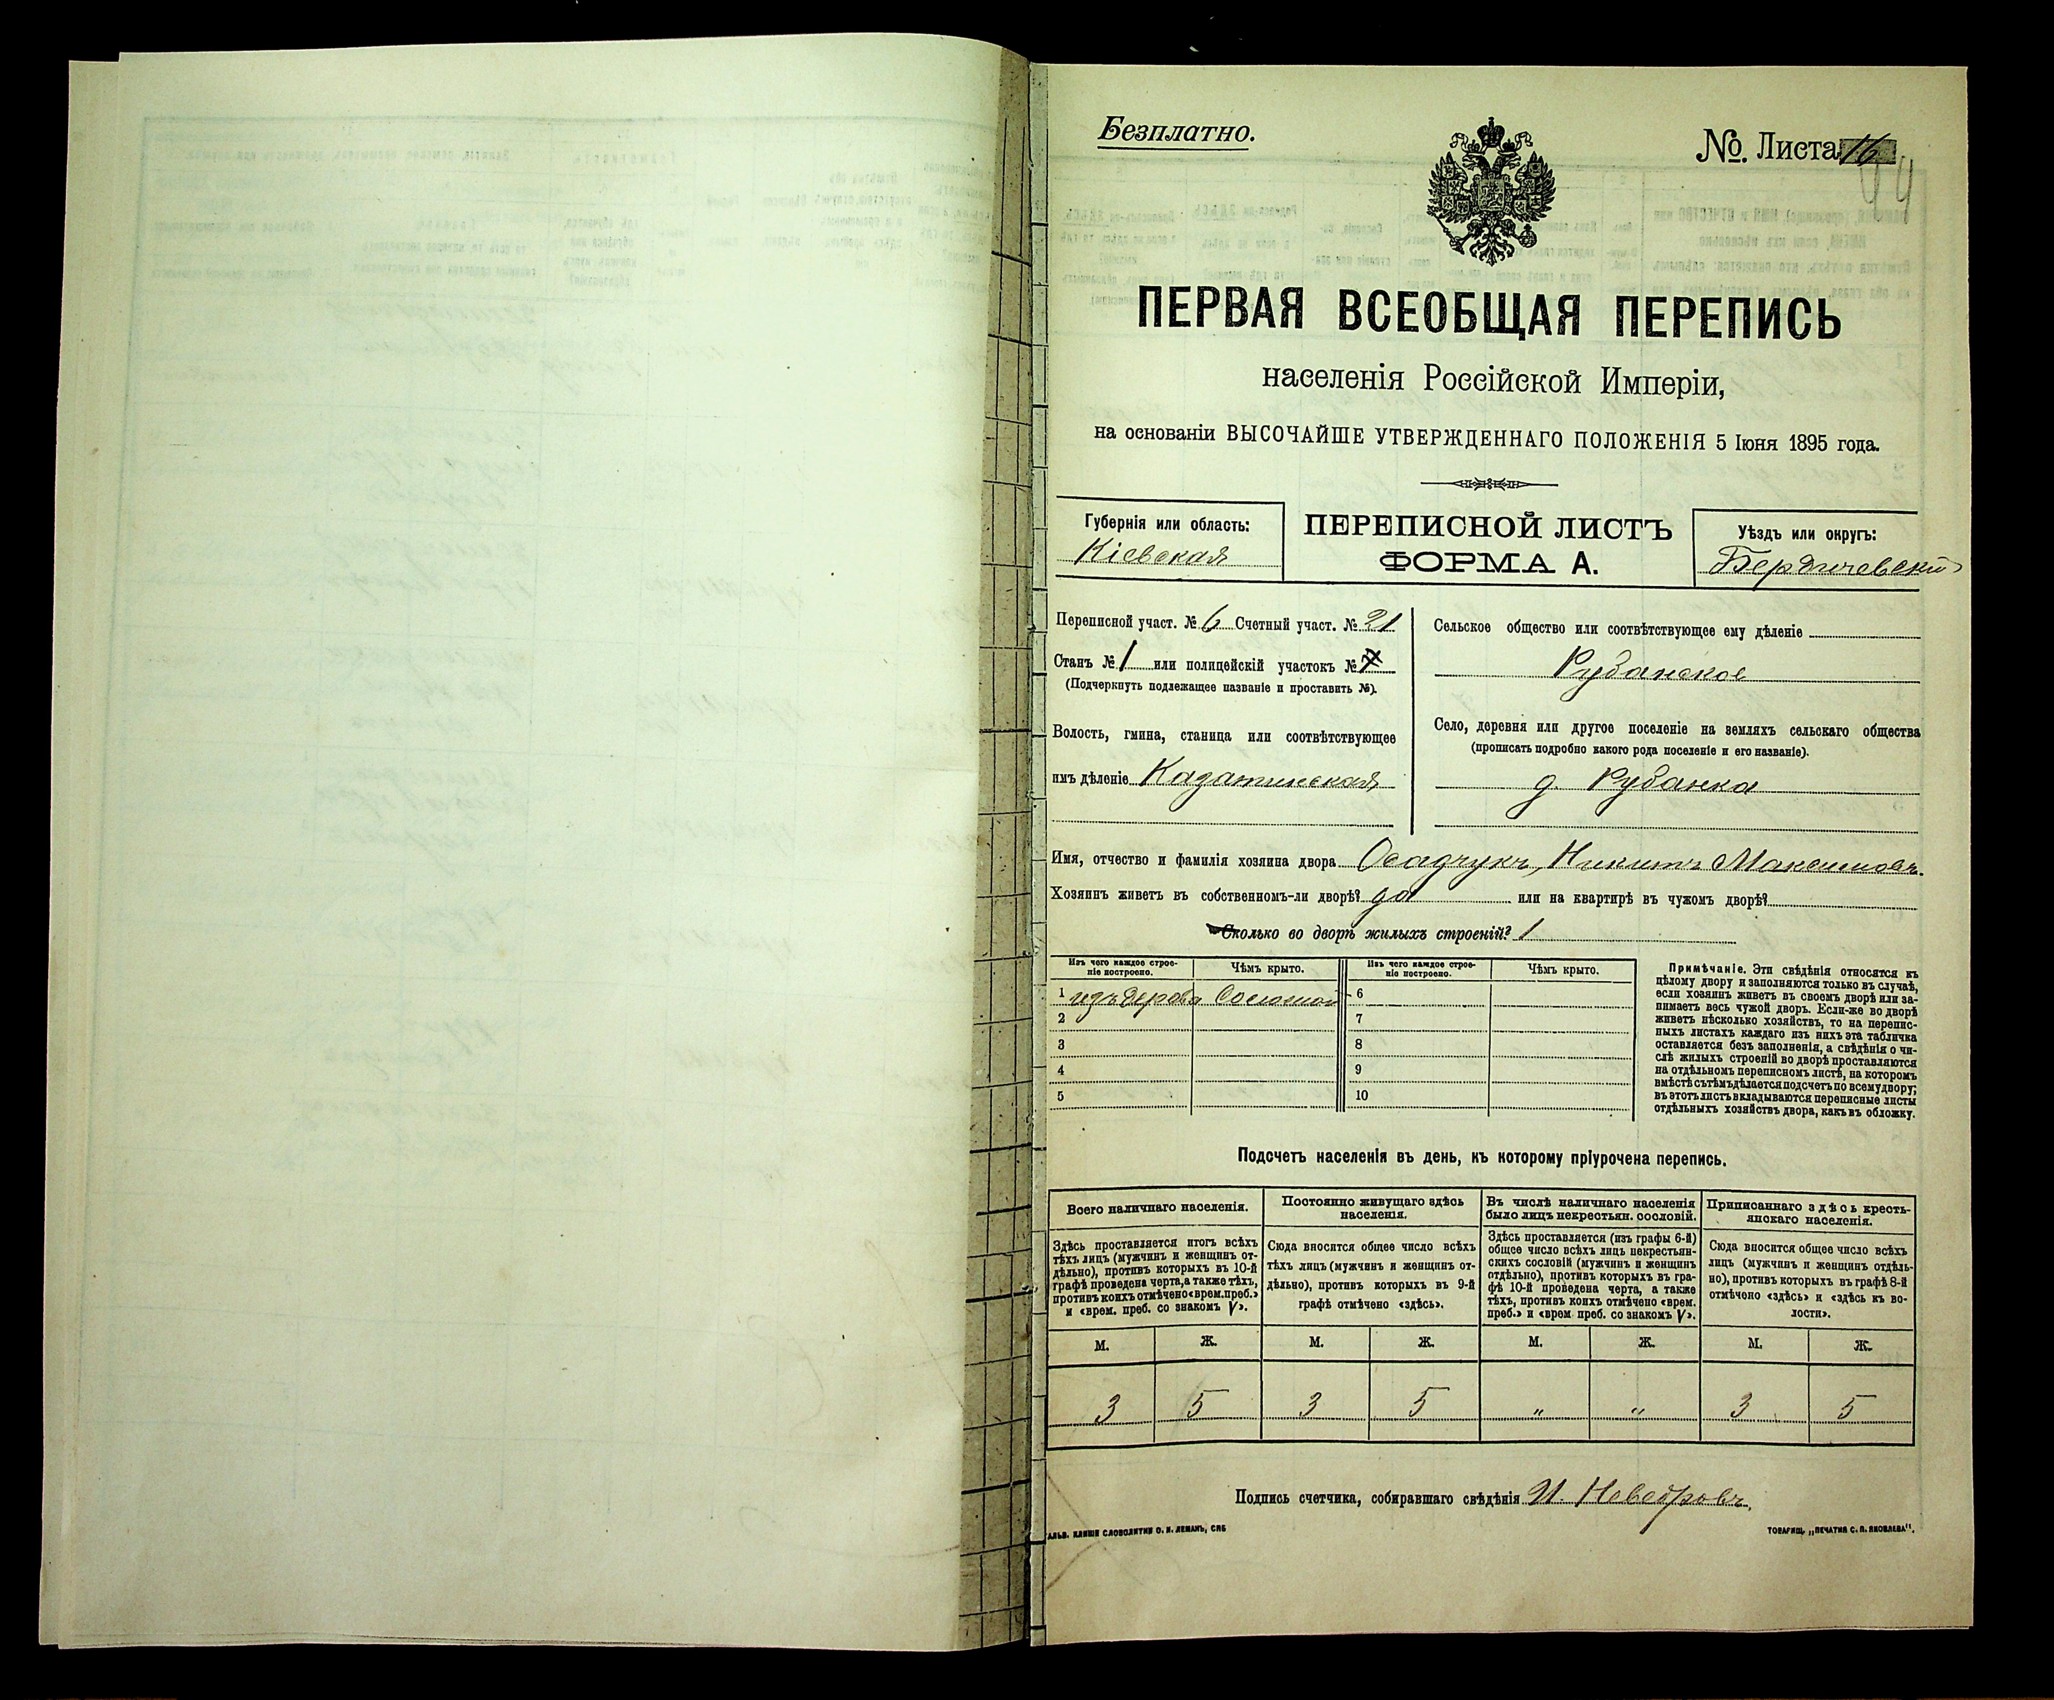 Безплатно.
№. Листа 16
44
ПЕРВАЯ ВСЕОБЩАЯ ПЕРЕПИСЬ
населенія Россійской Имперіи,
на основаніи ВЫСОЧАЙШЕ УТВЕРЖДЕННАГО ПОЛОЖЕНІЯ 5 Іюня 1895 года.
Губернія или область:
Кіевская
ПЕРЕПИСНОЙ ЛИСТЪ
ФОРМА А.
Уѣздъ или округъ:
Бердичевскій
Переписной участ. № 6 Счетный участ. № 21
Станъ № 1 или полицейскій участокъ №
(Подчеркнуть подлежащее названіе и проставить №).
Волость, гмина, станица или соотвѣтствующее
имъ дѣленіе Казатинская
Сельское общество или соотвѣтствующее ему дѣленіе
Рубанское
Село, деревня или другое поселеніе на земляхъ сельскаго общества
(прописать подробно какого рода поселеніе и его названіе).
д. Рубанка
Имя, отчество и фамилія хозяина двора Осадчукъ, Никита Максимовъ.
Хозяинъ живетъ въ собственномъ-ли дворѣ? да или на квартирѣ въ чужомъ дворѣ?
Сколько во дворѣ жилыхъ строеній? 1
Изъ чего каждое строе-
ніе построено.
Чѣмъ крыто.
Изъ чего каждое строе-
ніе построено.
Чѣмъ крыто.
1 изъ дерева Соломой 6
2 7
3 8
4 9
5 10
Примѣчаніе. Эти свѣдѣнія относятся къ
цѣлому двору и заполняются только въ случаѣ,
если хозяинъ живетъ въ своемъ дворѣ или за-
нимаетъ весь чужой дворъ. Если-же во дворѣ
живетъ нѣсколько хозяйствъ, то на перепис-
ныхъ листахъ каждаго изъ нихъ эта табличка
оставляется безъ заполненія, а свѣдѣнія о чи-
слѣ жилыхъ строеній во дворѣ проставляются
на отдѣльномъ переписномъ листѣ, на которомъ
вмѣстѣ съ тѣмъ дѣлается подсчетъ по всему двору;
въ этотъ листъ вкладываются переписные листы
отдѣльныхъ хозяйствъ двора, какъ въ обложку.
Подсчетъ населенія въ день, къ которому пріурочена перепись.
Всего наличнаго населенія.
Постоянно живущаго здѣсь
населенія.
Въ числѣ наличнаго населенія
было лицъ некрестьян. сословій.
Приписаннаго здѣсь кресть-
янскаго населенія.
Здѣсь проставляется итогъ всѣхъ
тѣхъ лицъ (мужчинъ и женщинъ от-
дѣльно), противъ которыхъ въ 10-й
графѣ проведена черта, а также тѣхъ,
противъ коихъ отмѣчено «врем. преб.»
и «врем. преб. со знакомъ V».
Сюда вносится общее число всѣхъ
тѣхъ лицъ (мужчинъ и женщинъ от-
дѣльно), противъ которыхъ въ 9-й
графѣ отмѣчено «здѣсь».
Здѣсь проставляется (изъ графы 6-й)
общее число всѣхъ лицъ некрестьян-
скихъ сословій (мужчинъ и женщинъ
отдѣльно), противъ которыхъ въ гра-
фѣ 10-й проведена черта, а также
тѣхъ, противъ коихъ отмѣчено «врем.
преб.» и «врем преб. со знакомъ V».
Сюда вносится общее число всѣхъ
лицъ (мужчинъ и женщинъ отдѣль-
но), противъ которыхъ въ графѣ 8-й
отмѣчено «здѣсь» и «здѣсь къ во-
лости».
М. Ж. М. Ж. М. Ж. М. Ж.
3 5 3 5 „ „ 3 5
Подпись счетчика, собиравшаго свѣдѣнія И.
СЛОВОЛИТНИ О. И. ЛЕМАНЪ, СПБ
ТОВАРИЩ. „ПЕЧАТНЯ С. П. ЯКОВЛЕВА".